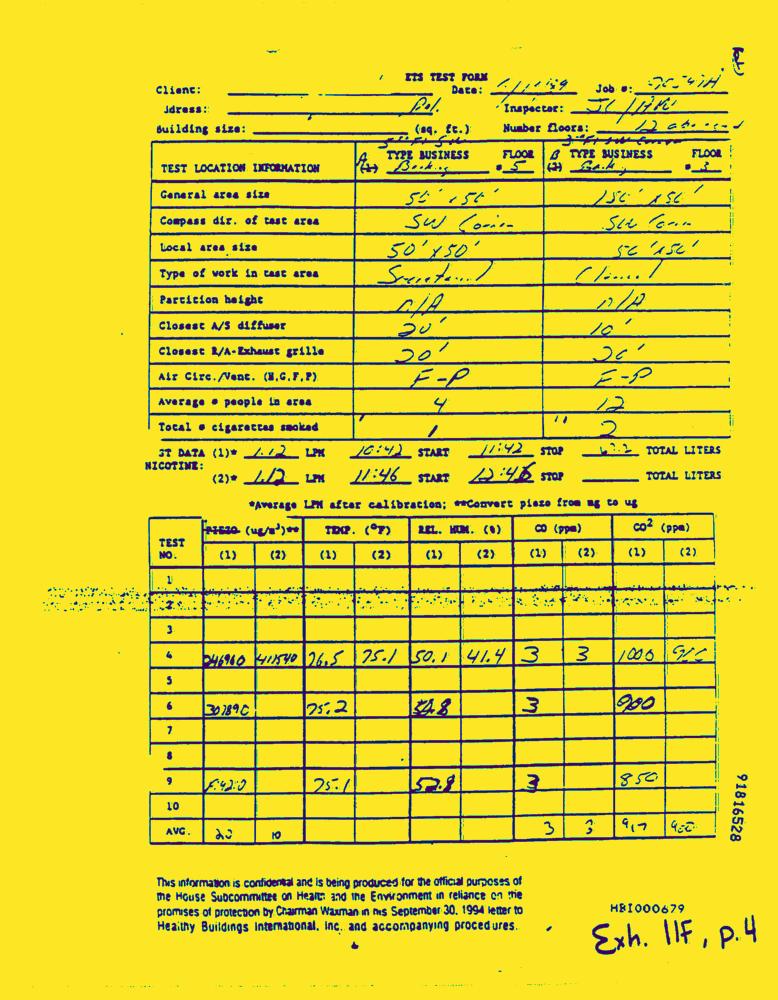 ETS TEST FORM
Client: Date: Job #:
ddress: Inspector:
Building size: (sq. ft.) Number floors: 12
TEST LOCATION INFORMATION A (1) TYPE BUSINESS FLOOR # 5 B (2) TYPE BUSINESS FLOOR # 3
General area size
Compass dir. of test area SW SW
Local area size 50'x50'
Type of work in test area
Partition height n/A n/A
Closest A/S diffuser 20' 10'
Closest R/A-Exhaust grille 20'
Air Circ./Vent. (N,G,F,P) F-P F-P
Average # people in area 4 12
Total # cigarettes smoked 1 2
ST DATA (1)* 1.12 LPM 10:42 START 11:42 STOP TOTAL LITERS
NICOTINE:
(2)* 1.12 LPM 11:46 START STOP TOTAL LITERS
*Average LPM after calibration; **Convert piezo from mg to ug
TEST NO. PIEZO (ug/m³)** TEMP. (°F) REL. HUM. (%) CO (ppm) CO² (ppm)
(1) (2) (1) (2) (1) (2) (1) (2) (1) (2)
1
2
3
4 246960 411540 76.5 75.1 50.1 41.4 3 3 1000
5
6 75.2 3 900
7
8
9 75.1 52.8 3 850
10
AVG. 20 10 3 3
91816528
This information is confidential and is being produced for the official purposes of
the House Subcommittee on Health and the Environment in reliance on the
promises of protection by Chairman Waxman in his September 30, 1994 letter to
Healthy Buildings International, Inc. and accompanying procedures.
HBI000679
Exh. 11F, p.4